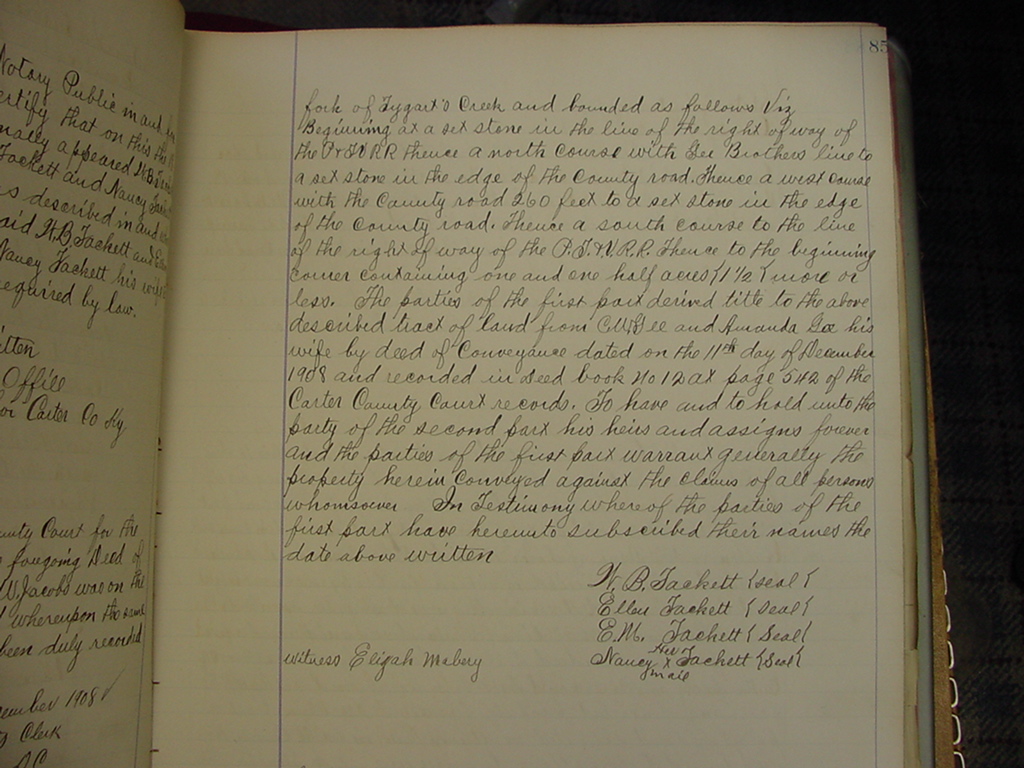 Notary Public in and for
ertify that on this the
nally appeared W.B.
Tackett and Nancy
s described in and
aid W.B. Tackett and
Nancy Tackett his wife
equired by law.
itten
Office
for Carter Co Ky
unty Court for the
foregoing Deed of
W. Jacobs was on the
whereupon the same
been duly recorded
cember 1908
Clerk
D.C.
85
fork of Tygart's Creek and bounded as follows Viz
Beginning at a set stone in the line of the right of way of
the RR thence a north course with Gee Brothers line to
a set stone in the edge of the County road. Thence a west course
with the County road 260 feet to a set stone in the edge
of the County road. Thence a south course to the line
of the right of way of the R.R. Thence to the beginning
corner containing one and one half acres {1½{ more or
less. The parties of the first part derived title to the above
described tract of land from C.W. Gee and Amanda Gee his
wife by deed of Conveyance dated on the 11th day of December
1908 and recorded in deed book No 12 at page 542 of the
Carter County Court records. To have and to hold unto the
party of the second part his heirs and assigns forever
and the parties of the first part warrant generally the
property herein conveyed against the claims of all persons
whomsoever In Testimony whereof the parties of the
first part have hereunto subscribed their names the
date above written
W. B. Tackett {seal{
Ellen Tackett {Seal{
E.M. Tackett {Seal{
Her
witness Elijah Mabery Nancy x Tackett {Seal{
mark